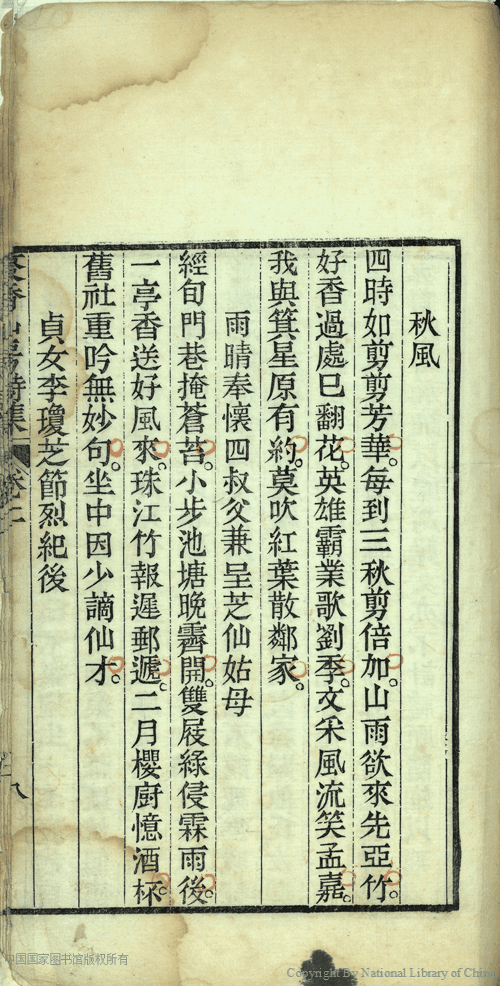 秋風
四時如剪剪芳華。每到三秋剪倍加。山雨欲來先亞竹。
好香過處已翻花。英雄霸業歌劉季。文采風流笑孟嘉。
我與箕星原有約。莫吹紅葉散鄰家。
雨晴奉懷四叔父兼呈芝仙姑母
經旬門巷掩蒼苔。小步池塘晚霽開。雙屐綠侵霖雨後。
一亭香送好風來。珠江竹報遲郵遞。二月櫻廚憶酒杯。
舊社重吟無妙句。坐中因少謫仙才。
貞女李瓊芝節烈紀後
香山房詩集
卷二
八
中国国家图书馆版权所有
Copyright By National Library of China